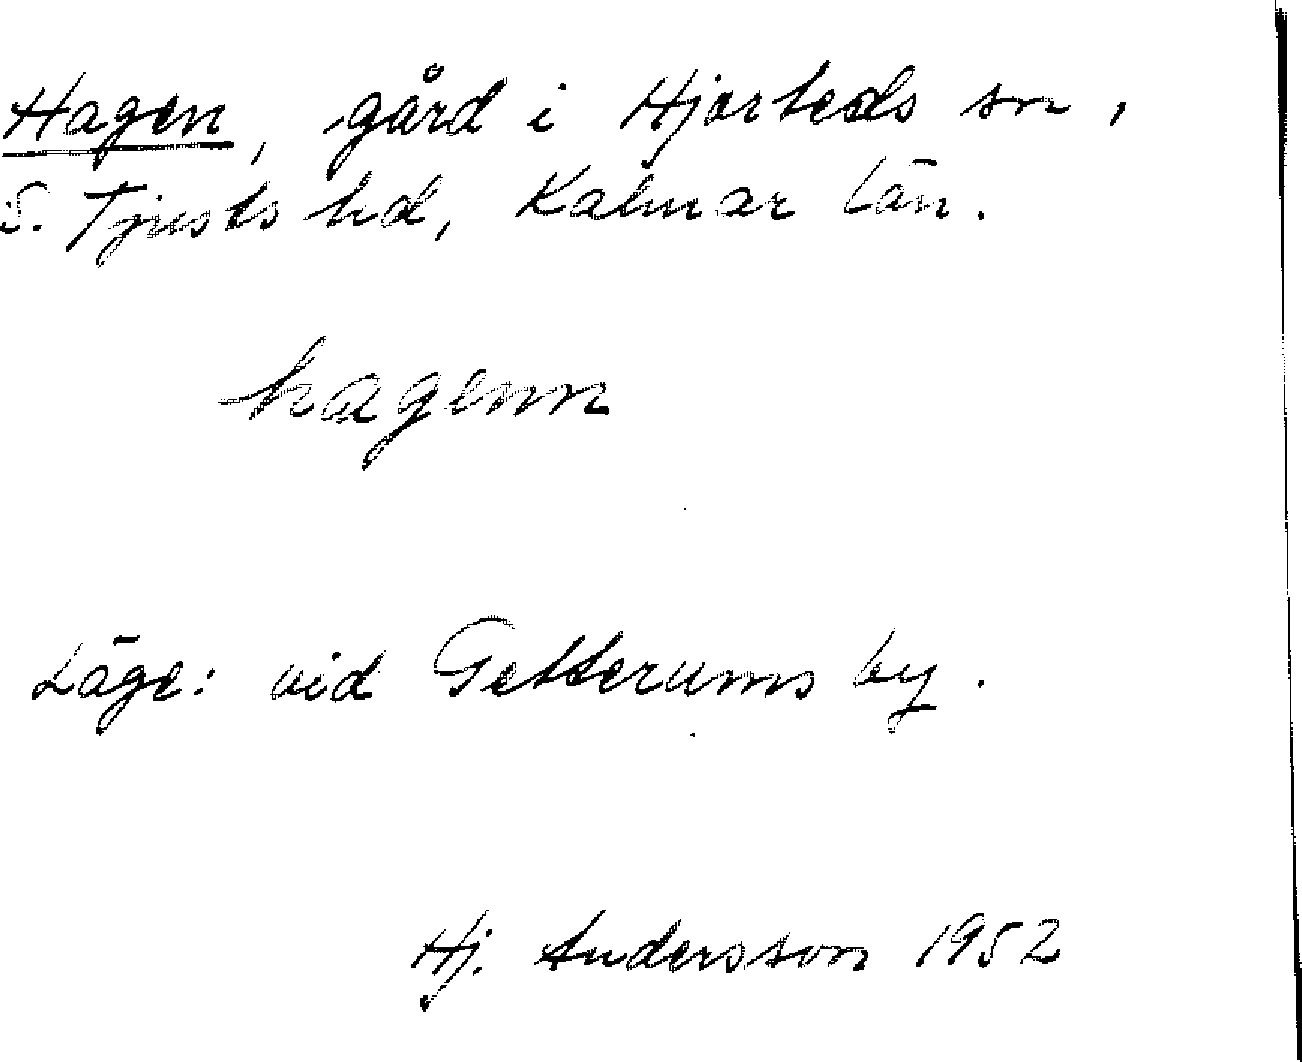 Hagen, gård i Hjorteds sn,
S. Tjusts hd, Kalmar län.
hagenn
Läge: vid Getterums by.
Hj. Andersson 1952